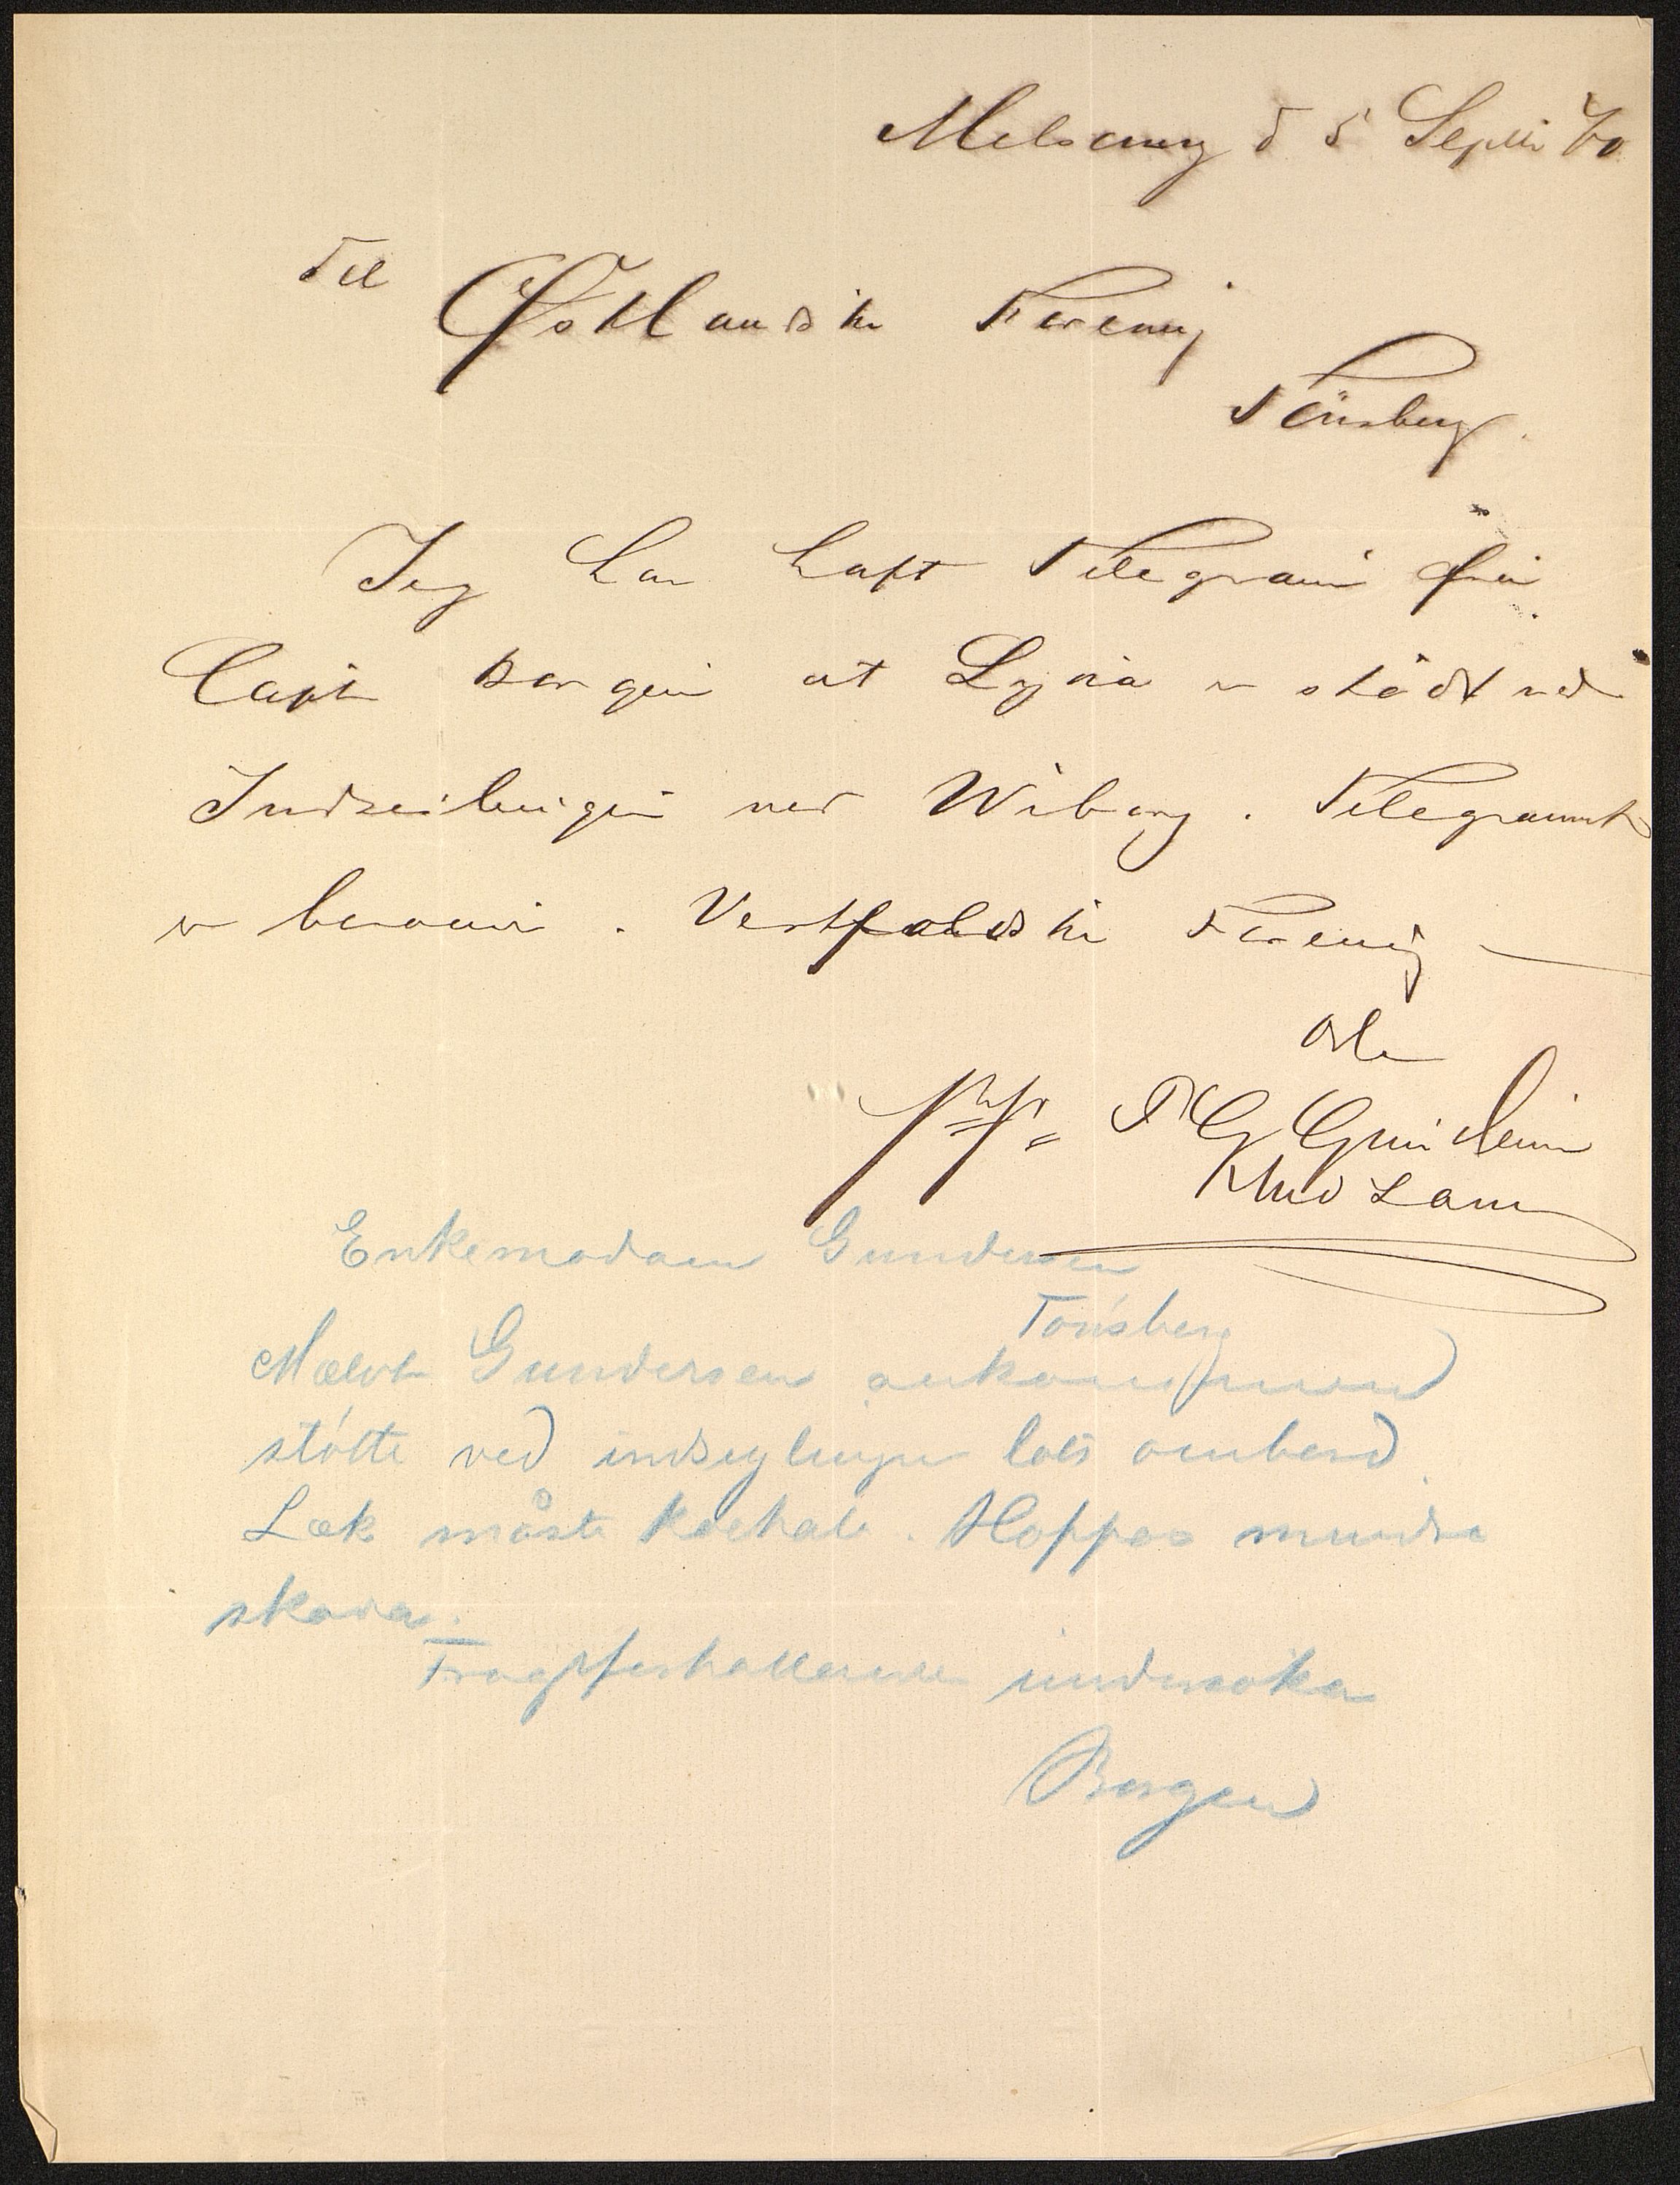 Melsomvig d 5 Septbr 90
Til
Østlandske Forening
Tönsberg.
Jeg har haft Telegram fra
Capt Borgen at Lyna er stødt ved
Indseilingen ved Wiborg. Telegrammet
er hosaaen. Vestfoldske Forening
Ark
pp. Gundersen
Enkemadam Gundersen
Tönsberg
Gundersen ankommen
stötte ved indseglingen lots ombord
Læk måste kolhale. Hoppes mindre
skada.
undersöka
Borgen